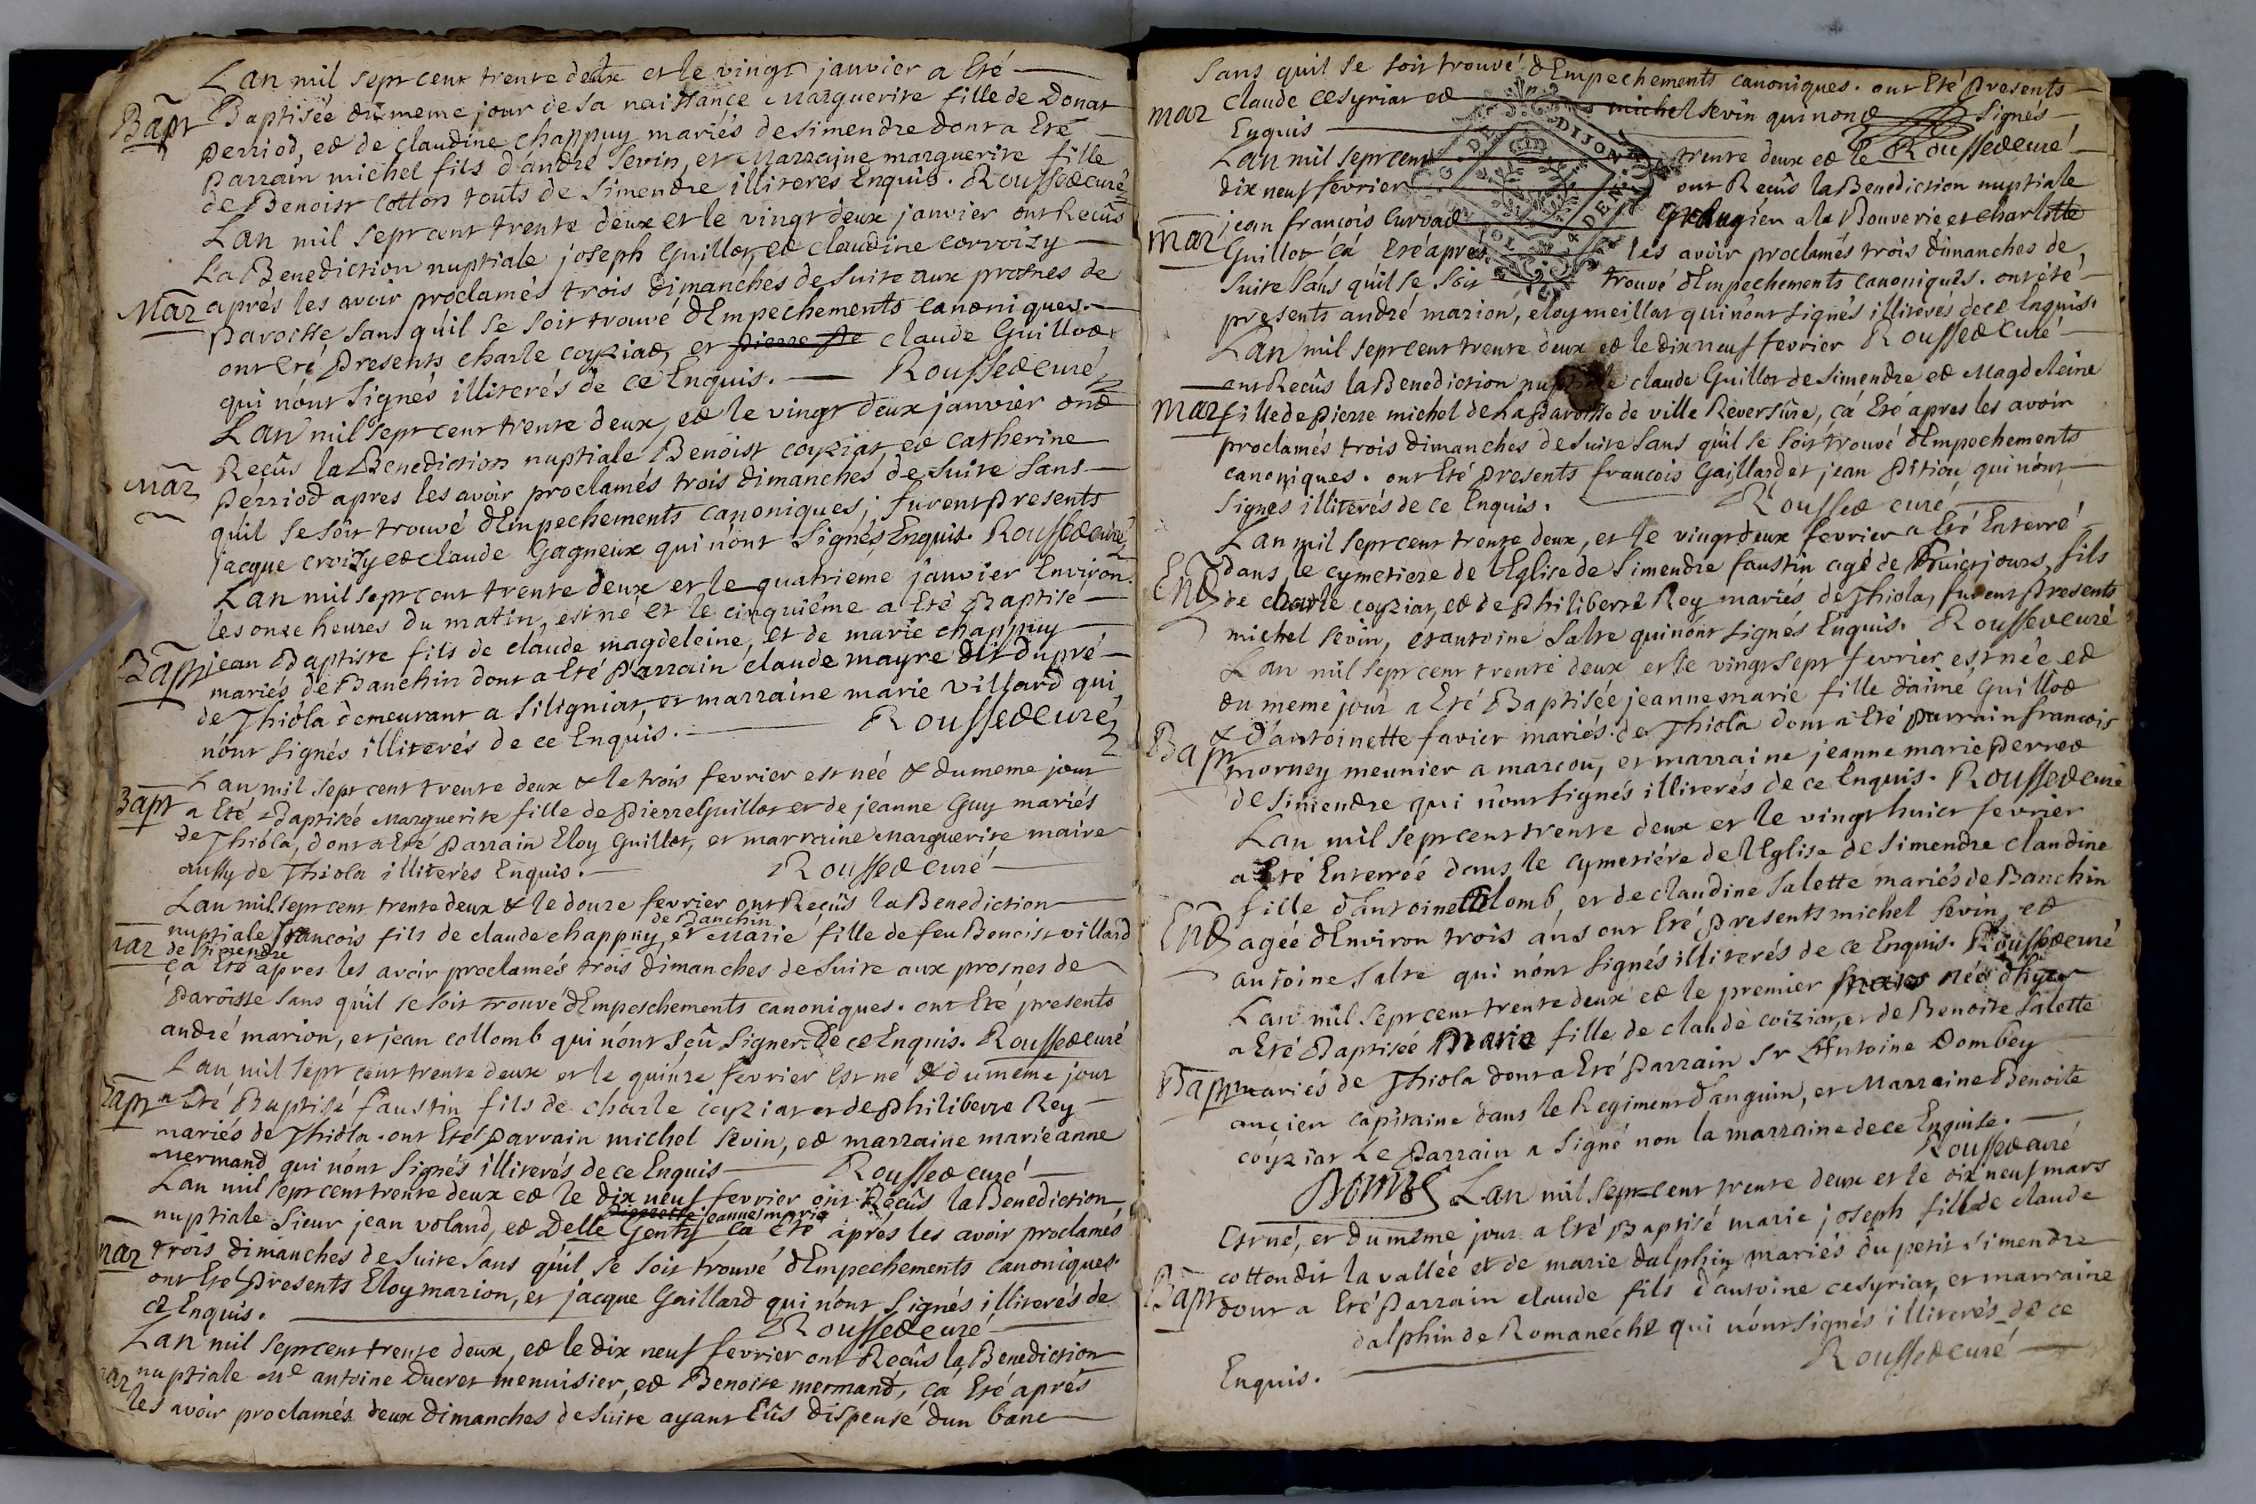 Lan mil sept cent trente deux et le vingt janvier a Eté
Bapt Baptisée du meme jour de sa naissance Marguerite fille de Donat
perriod, et de claudine chappuy mariés de simendre dont a Eté
parrain michel fils d'andré sevin, et Marraine marguerite fille
de Benoist cotton touts de simendre illiterés Enquis. Roussed curé
Lan mil sept cent trente deux et le vingt deux janvier ont Recûs
La Benediction nuptiale joseph Guillot, et claudine corroizy
Mar aprés les avoir proclamés trois dimanches de suite aux prosnes de
paroisse sans qu'il se soit trouvé d'Empechements canoniques.
ont eté presents charle coyziat, et claude Guillot
qui n'ont signés illiterés de ce Enquis. Roussed curé
Lan mil sept cent trente deux, et le vingt deux janvier ont
Mar Reçûs la Benediction nuptiale Benoist coyziat, et catherine
perriod apres les avoir proclamés trois dimanches de suite sans
quil se soit trouvé d'Empechements canoniques; furent presents
jacque croizy et claude Gagneux qui n'ont signés Enquis. Roussed curé
Lan mil sept cent trente deux et le quatrieme janvier Environ
les onze heures du matin, est né et le cinquiême a Eté Baptisé
Bapt jean Baptiste fils de claude magdeleine, et de marie chappuy
mariés de Banchin dont a Eté parrain claude mayre dit dupré
de Thiola demeurant a siligniat, et marraine marie villard qui
n'ont signés illiterés de ce Enquis. Roussed curé
Lan mil sept cent trente deux & le trois fevrier est née & du meme jour
Bapt a Eté Baptisée Marguerite fille de pierre Guillot et de jeanne Guy mariés
de Thiola, dont a Eté parrain Eloy Guillot, et marraine Marguerite maire
aussy de Thiola illiterés Enquis. Roussed curé
Lan mil sept cent trente deux & le douze fevrier ont Reçûs la Benediction
de Banchin
Mar nuptiale francois fils de claude chappuy, et Marie fille de feu Benoist villard
de simendre
ça Eté apres les avoir proclamés trois dimanches de suite aux prosnes de
paroisse sans qu'il se soit trouvé d'Empeschements canoniques. ont Eté presents
andré marion, et jean collomb qui n'ont sçû signer de ce Enquis. Roussed curé
Lan mil sept cent trente deux et le quinze fevrier Est né & du meme jour
Bapt a Eté Baptisé faustin fils de charle coyziat et de philiberte Rey
mariés de Thiola. ont Eté parrain michel sevin, et marraine marie anne
mermand qui n'ont signés illiterés de ce Enquis Roussed curé
Lan mil sept cent trente deux et le dix neuf fevrier ont Réçûs la Benediction
jeanne marie
nuptiale sieur jean voland, et Delle Genty ça Eté aprés les avoir proclamés
Mar trois dimanches de suite sans qu'il se soit trouvé d'Empechements canoniques.
ont Eté presents Eloy marion, et jacque Gaillard qui n'ont signés illiterés de
ce Enquis. Roussed curé
Lan mil sept cent trente deux, et le dix neuf fevrier ont Reçûs la Benediction
Mar nuptiale Me antoine Ducret menuisier, et Benoite mermand, ça Eté aprés
les avoir proclamés deux dimanches de suite ayant Eûs dispense d'un banc
sans quil se soit trouvé d'Empechements canoniques. ont Eté presents
Mar claude cesyriat et michel sevin qui n'ont signés
Enquis Roussed curé
Lan mil sept cent trente deux et le
dix neuf fevrier ont Reçûs la Benediction nuptiale
jean françois curvat Grangier a la Bouverie et charlotte
Mar Guillot ça Eté aprés les avoir proclamés trois dimanches de
suite sans qu'il se soit trouvé d'Empechements canoniques. ont été
presents andré marion, eloy meillat qui n'ont signés illiterés de ce Enquis.
Lan mil sept cent trente deux et le dix neuf fevrier Roussed curé
ont Reçûs la Benediction nuptiale claude Guillot de simendre et Magdeleine
Mar fille de pierre michel de la paroisse de ville Reversûre, ça Eté apres les avoir
proclamés trois dimanches de suite sans qu'il se soit trouvé d'Empechements
canoniques. ont Eté presents francois Gaillard, et jean pition, qui n'ont
signés illiterés de ce Enquis. Roussed curé
Lan mil sept cent trente deux, et le vingt deux fevrier a Eté Enterré
Ent dans le cymetiere de l'Eglise de simendre faustin agé de huict jours, fils
de charle coyziat, et de philiberte Rey mariés de Thiola, furent presents
michel sevin, et antoine salte qui n'ont signés Enquis. Roussed curé
Lan mil sept cent trente deux et le vingt sept fevrier est née et
du meme jour a Eté Baptisée jeanne marie fille d'aimé Guillot
& d'antoinette favier mariés de Thiola dont a Eté parrain francois
Bapt morney meunier a marcou, et marraine jeanne marie perret
de simendre qui n'ont signés illiterés de ce Enquis. Roussed curé
Lan mil sept cent trente deux et le vingt huict fevrier
a Eté Enterrée dans le cymetiére de l'Eglise de simendre claudine
fille d'antoine colomb, et de claudine salette mariés de Banchin
Ent agée d'Environ trois ans ont Eté presents michel sevin, et
antoine salte qui n'ont signés illiterés de ce Enquis. Roussed curé
Lan mil sept cent trente deux et le premier mars née d'hyer
a Eté Baptisée Marie fille de claude coiziat, et de Benoite salette
Bapt mariés de Thiola dont a Eté parrain sr Antoine Dombey
ancien capitaine dans le Regiment d'anguin, et Marraine Benoite
coyziat Le parrain a signé non la marraine de ce Enquise.
Roussed curé
Lan mil sept cent trente deux et le dix neuf mars
Est né, et du même jour a Eté Baptisé marie joseph fille de claude
cotton dit la vallée et de marie dalphin mariés du petit simendre
Bapt dont a Eté parrain claude fils d'antoine cesyriat, et marraine
dalphin de Romanéche qui n'ont signés illiterés de ce
Enquis. Roussed curé